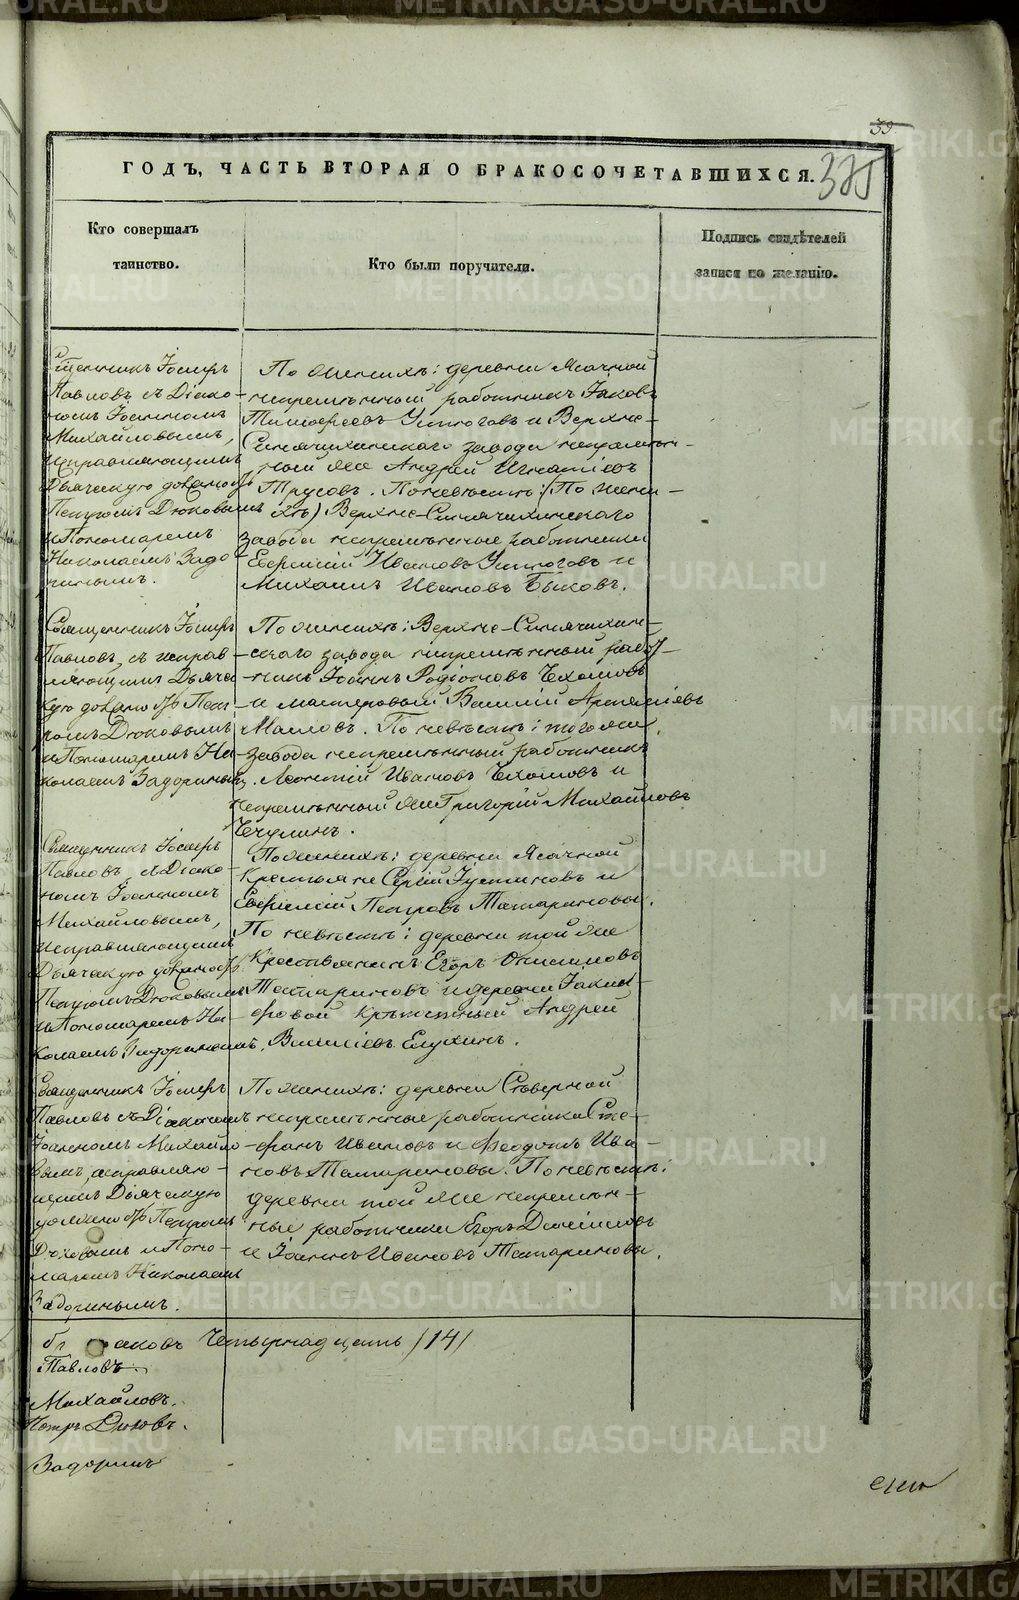 39
ГОДЪ, ЧАСТЬ ВТОРАЯ О БРАКОСОЧЕТАВШИХСЯ.
375
Кто совершалъ
таинство.
Кто были поручатели.
Подпись свидѣтелей
записи по желанію.
Священникъ Іосифъ
Павловъ съ Діако-
номъ Іоанномъ
Михайловымъ,
исправляющимъ
Дьяческую должность
Петромъ Дюковымъ
и Пономаремъ
Николаемъ Задо
ринымъ.
По женихѣ: деревни Ясачной
непремѣнный работникъ Іаковъ
Тимофеевъ Устюговъ и Верхне-
Синячихинскаго завода непремѣн-
ный же Андрей Игнатіевъ
Трусовъ. По невѣстѣ: (По жени-
хѣ) Верхне-Синячихинскаго
завода непремѣнные работники
Евфимій Ивановъ Устюговъ и
Михаилъ Ивановъ Быковъ.
Священникъ Іосифъ
Павловъ, съ исправ
ляющимъ Дьяче
скую должность Пет
ромъ Дюковымъ
и Пономаремъ Ни
колаемъ Задоринымъ.
По женихѣ: Верхне-Синячихин-
скаго завода непремѣнный работ-
никъ Іоаннъ Родіоновъ Чехомовъ
и мастеровый Василій Артеміевъ
Масловъ. По невѣстѣ: того же
завода непремѣнный работникъ
Леонтій Ивановъ Чехомовъ и
непремѣнный же Григорій Михайловъ
Чечулинъ.
Священникъ Іосифъ
Павловъ, съ Діако-
номъ Іоанномъ
Михайловымъ,
исправляющимъ
Дьяческую должность
Петромъ Дюковымъ
и Пономаремъ Ни-
колаемъ Задоринымъ.
По женихѣ: деревни Ясачной
Крестьяне Сергій Іустиновъ и
Евфимій Петровъ Татариновы.
По невѣстѣ: деревни той же
Крестьянинъ Егоръ Онисимовъ
Татариновъ и деревни
Андрей
Василіевъ Елухинъ.
Священникъ Іосифъ
Павловъ съ Діакономъ
Іоанномъ Михайло-
вымъ, исправляю-
щимъ Дьяческую
должность Петромъ
Дюковымъ и Поно-
маремъ Николаемъ
Задоринымъ.
По женихѣ: деревни Сѣверной
непремѣнные работники Сте-
фанъ Ивановъ и Феодотъ Ива-
новъ Татариновы. По невѣстѣ:
деревни той же непремѣн-
ные работники Егоръ Даниловъ
и Іоаннъ Ивановъ Татариновы.
Четырнадцать /14/
Павловъ.
Михайловъ.
Петръ Дюковъ.
Задоринъ
METRIKI.GASO-URAL.RU